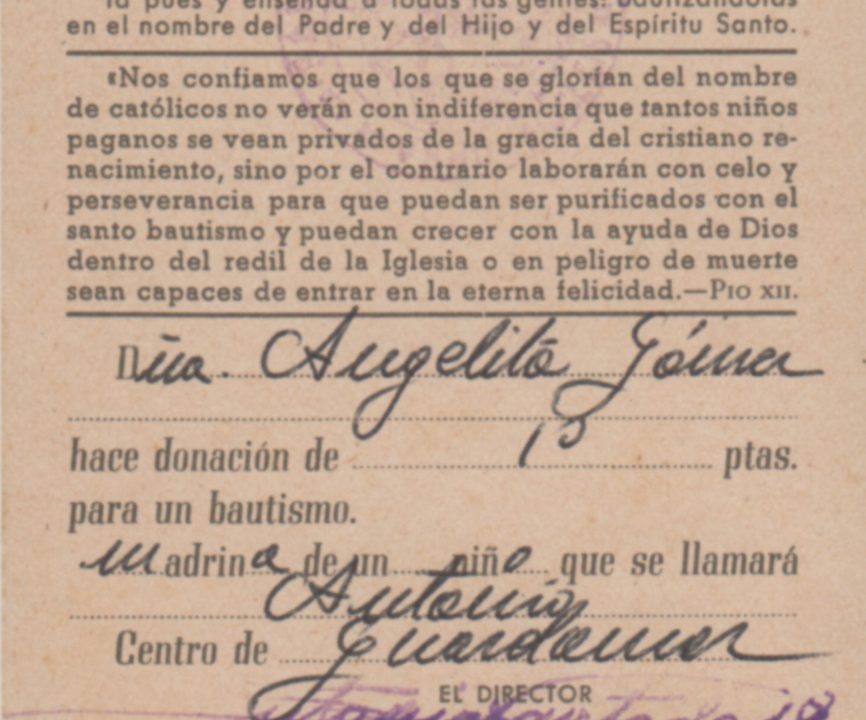 la pues y enseñad a todas las gentes: bautizándolas
en el nombre del Padre y del Hijo y del Espíritu Santo.
«Nos confiamos que los que se glorían del nombre
de católicos no verán con indiferencia que tantos niños
paganos se vean privados de la gracia del cristiano re-
nacimiento, sino por el contrario laborarán con celo y
perseverancia para que puedan ser purificados con el
santo bautismo y puedan crecer con la ayuda de Dios
dentro del redil de la Iglesia o en peligro de muerte
sean capaces de entrar en la eterna felicidad.—PIO XII.
Dña. Angelita Gómez
hace donación de ptas.
para un bautismo.
Madrina de un niño que se llamará
Antonio
Centro de Guardamar
EL DIRECTOR